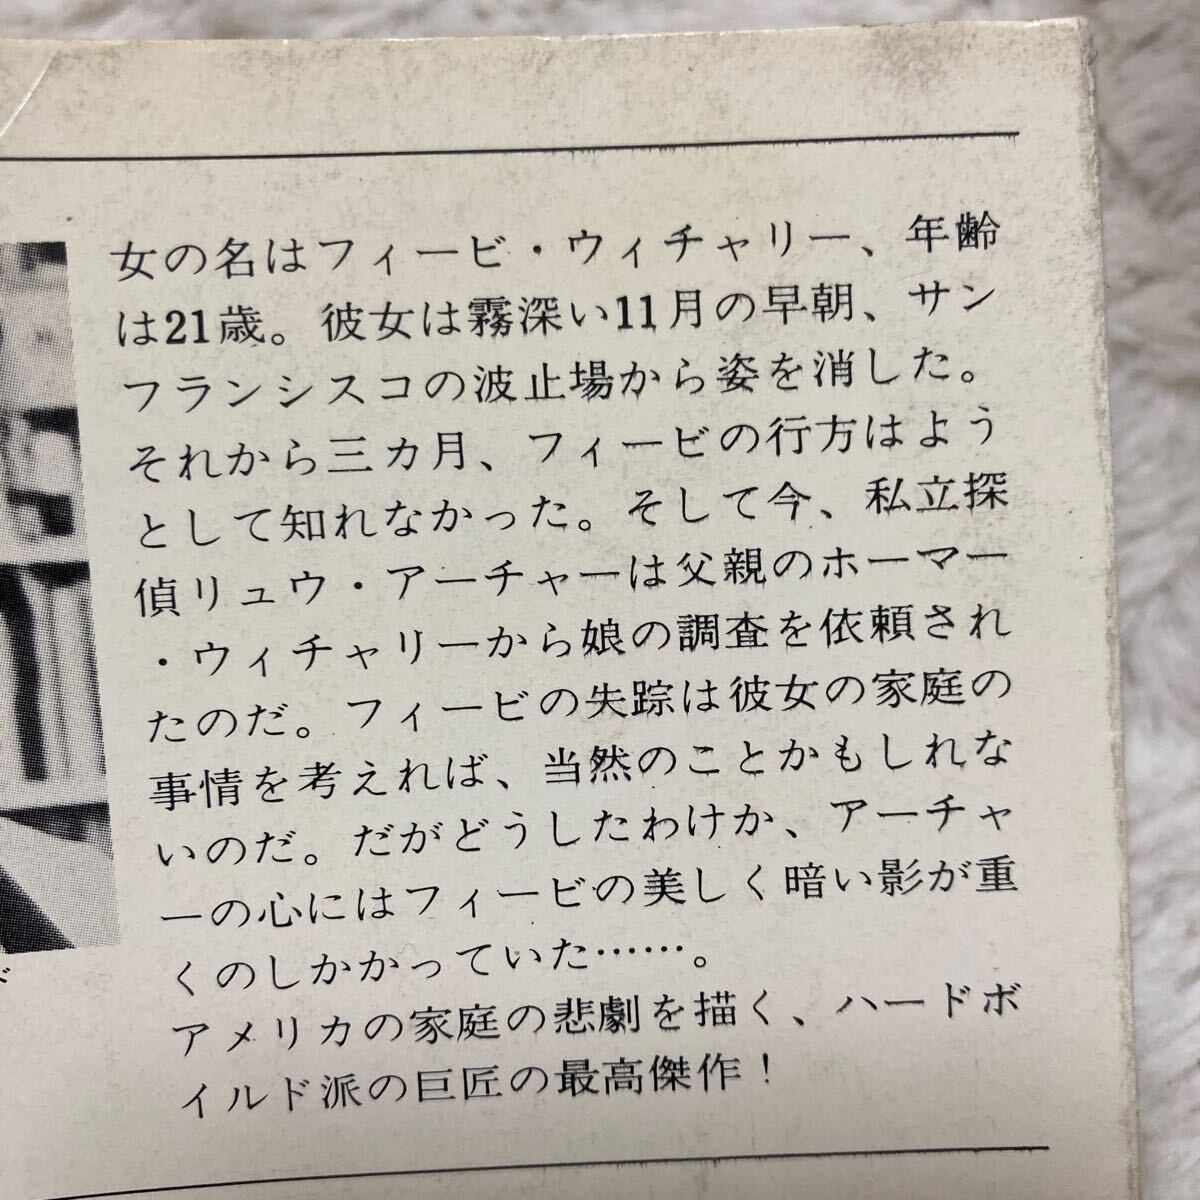 女の名はフィービ・ウィチャリー、年齢
は21歳。彼女は霧深い11月の早朝、サン
フランシスコの波止場から姿を消した。
それから三カ月、フィービの行方はよう
として知れなかった。そして今、私立探
偵リュウ・アーチャーは父親のホーマー
・ウィチャリーから娘の調査を依頼され
たのだ。フィービの失踪は彼女の家庭の
事情を考えれば、当然のことかもしれな
いのだ。だがどうしたわけか、アーチャ
ーの心にはフィービの美しく暗い影が重
くのしかかっていた……。
アメリカの家庭の悲劇を描く、ハードボ
イルド派の巨匠の最高傑作！
ド